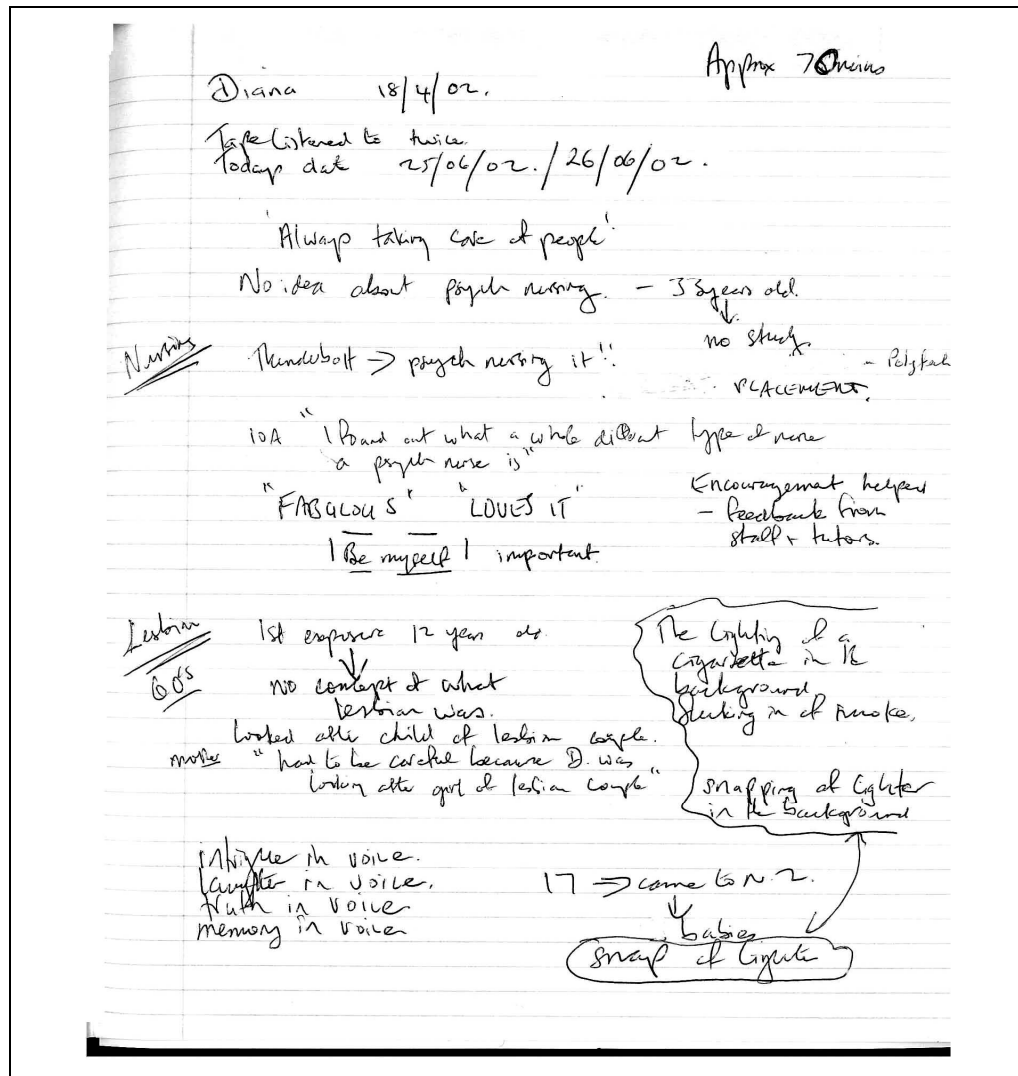 Approx 70mins
Diana 18/4/02.
Tape listened to twice.
Todays date 25/06/02. / 26/06/02.
'Always taking care of people'
No idea about psych nursing. - 33 years old.
no study.
Nursing
Thunderbolt → psych nursing it!!
- Polytech
PLACEMENT.
10A "I found out what a whole different type of nurse
a psych nurse is"
"FABULOUS" "LOVES IT"
Encouragement helped
- feedback from
staff + tutors.
| Be myself | important.
Lesbian
60's
1st exposure 12 years old.
NO concept of what
lesbian was.
Looked after child of lesbian couple.
mother "had to be careful because D. was
looking after girl of lesbian couple"
The lighting of a
cigarette in the
background
Sucking in of smoke.
snapping of lighter
in the background
intrigue in voice.
laughter in voice.
truth in voice
memory in voice
17 → came to N.Z.
babies
snap of lighter